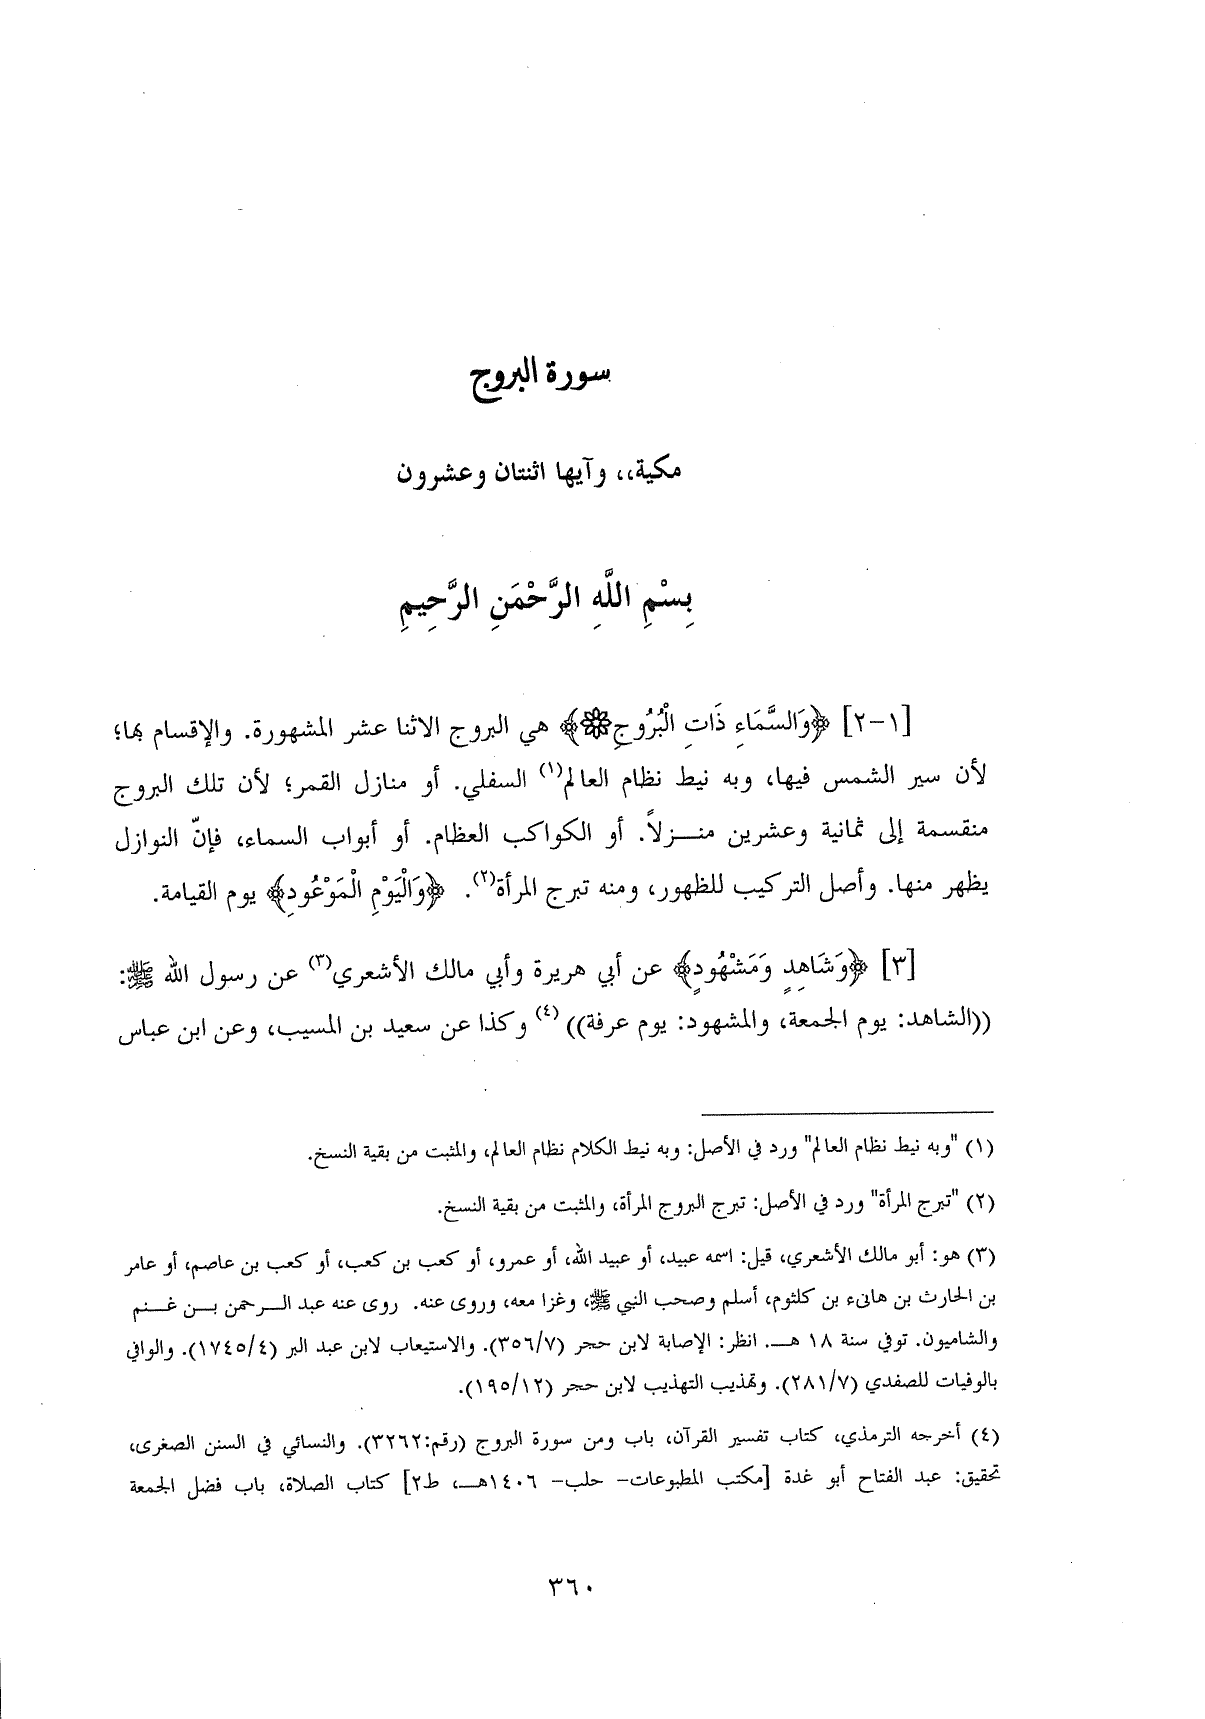 سورة البروج
مكية،، وآيها اثنتان وعشرون
بِسْمِ اللَّهِ الرَّحْمَنِ الرَّحِيمِ
[١-٢] ﴿وَالسَّمَاءِ ذَاتِ الْبُرُوجِ۞﴾ هي البروج الاثنا عشر المشهورة. والإقسام بها؛
لأن سير الشمس فيها، وبه نيط نظام العالم(١) السفلي. أو منازل القمر؛ لأن تلك البروج
منقسمة إلى ثمانية وعشرين منـزلاً. أو الكواكب العظام. أو أبواب السماء، فإنّ النوازل
يظهر منها. وأصل التركيب للظهور، ومنه تبرج المرأة(٢). ﴿وَالْيَوْمِ الْمَوْعُودِ﴾ يوم القيامة.
[٣] ﴿وَشَاهِدٍ وَمَشْهُودٍ﴾ عن أبي هريرة وأبي مالك الأشعري(٣) عن رسول الله ﷺ:
((الشاهد: يوم الجمعة، والمشهود: يوم عرفة))(٤) وكذا عن سعيد بن المسيب، وعن ابن عباس
(١) "وبه نيط نظام العالم" ورد في الأصل: وبه نيط الكلام نظام العالم، والمثبت من بقية النسخ.
(٢) "تبرج المرأة" ورد في الأصل: تبرج البروج المرأة، والمثبت من بقية النسخ.
(٣) هو: أبو مالك الأشعري، قيل: اسمه عبيد، أو عبيد الله، أو عمرو، أو كعب بن كعب، أو كعب بن عاصم، أو عامر
بن الحارث بن هانىء بن كلثوم، أسلم وصحب النبي ﷺ، وغزا معه، وروى عنه. روى عنه عبد الـرحمن بـن غـنم
والشاميون. توفي سنة ١٨ هـ. انظر: الإصابة لابن حجر (٣٥٦/٧). والاستيعاب لابن عبد البر (١٧٤٥/٤). والوافي
بالوفيات للصفدي (٢٨١/٧). وتهذيب التهذيب لابن حجر (١٩٥/١٢).
(٤) أخرجه الترمذي، كتاب تفسير القرآن، باب ومن سورة البروج (رقم:٣٢٦٢). والنسائي في السنن الصغرى،
تحقيق: عبد الفتاح أبو غدة [مكتب المطبوعات- حلب- ١٤٠٦هـ، ط٢] كتاب الصلاة، باب فضل الجمعة
٣٦٠